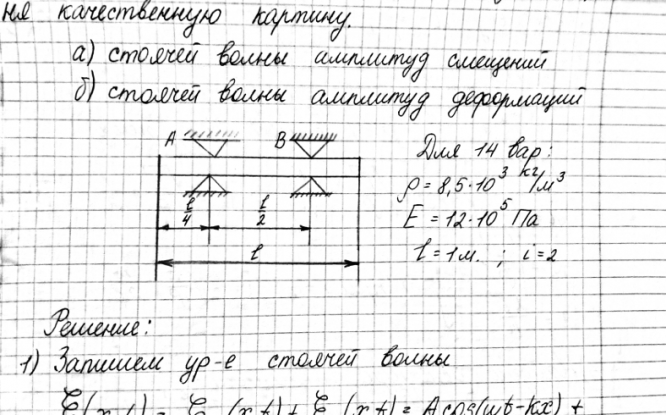 ня качественную картину.
а) стоячей волны амплитуд смещений
б) стоячей волны амплитуд деформаций
A
B
l/4
l/2
l
Для 14 вар:
ρ = 8,5·10³ кг/м³
E = 12·10⁵ Па
l = 1 м. ; i = 2
Решение:
1) Запишем ур-е стоячей волны
ξ(x,t) = ξ (x,t) + ξ (x,t) = A cos(ωt-kx) +